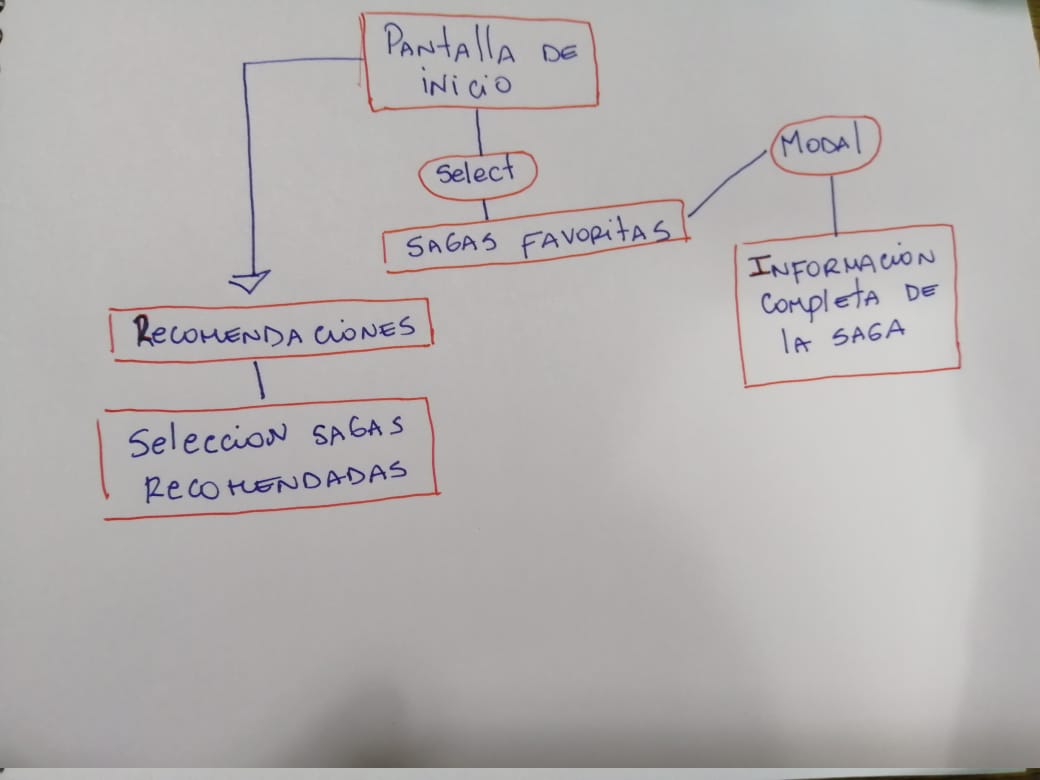 PANTALLA DE
INICIO
Select
SAGAS FAVORITAS
MODAL
INFORMACIÓN
COMPLETA DE
LA SAGA
RECOMENDACIONES
SELECCION SAGAS
RECOMENDADAS